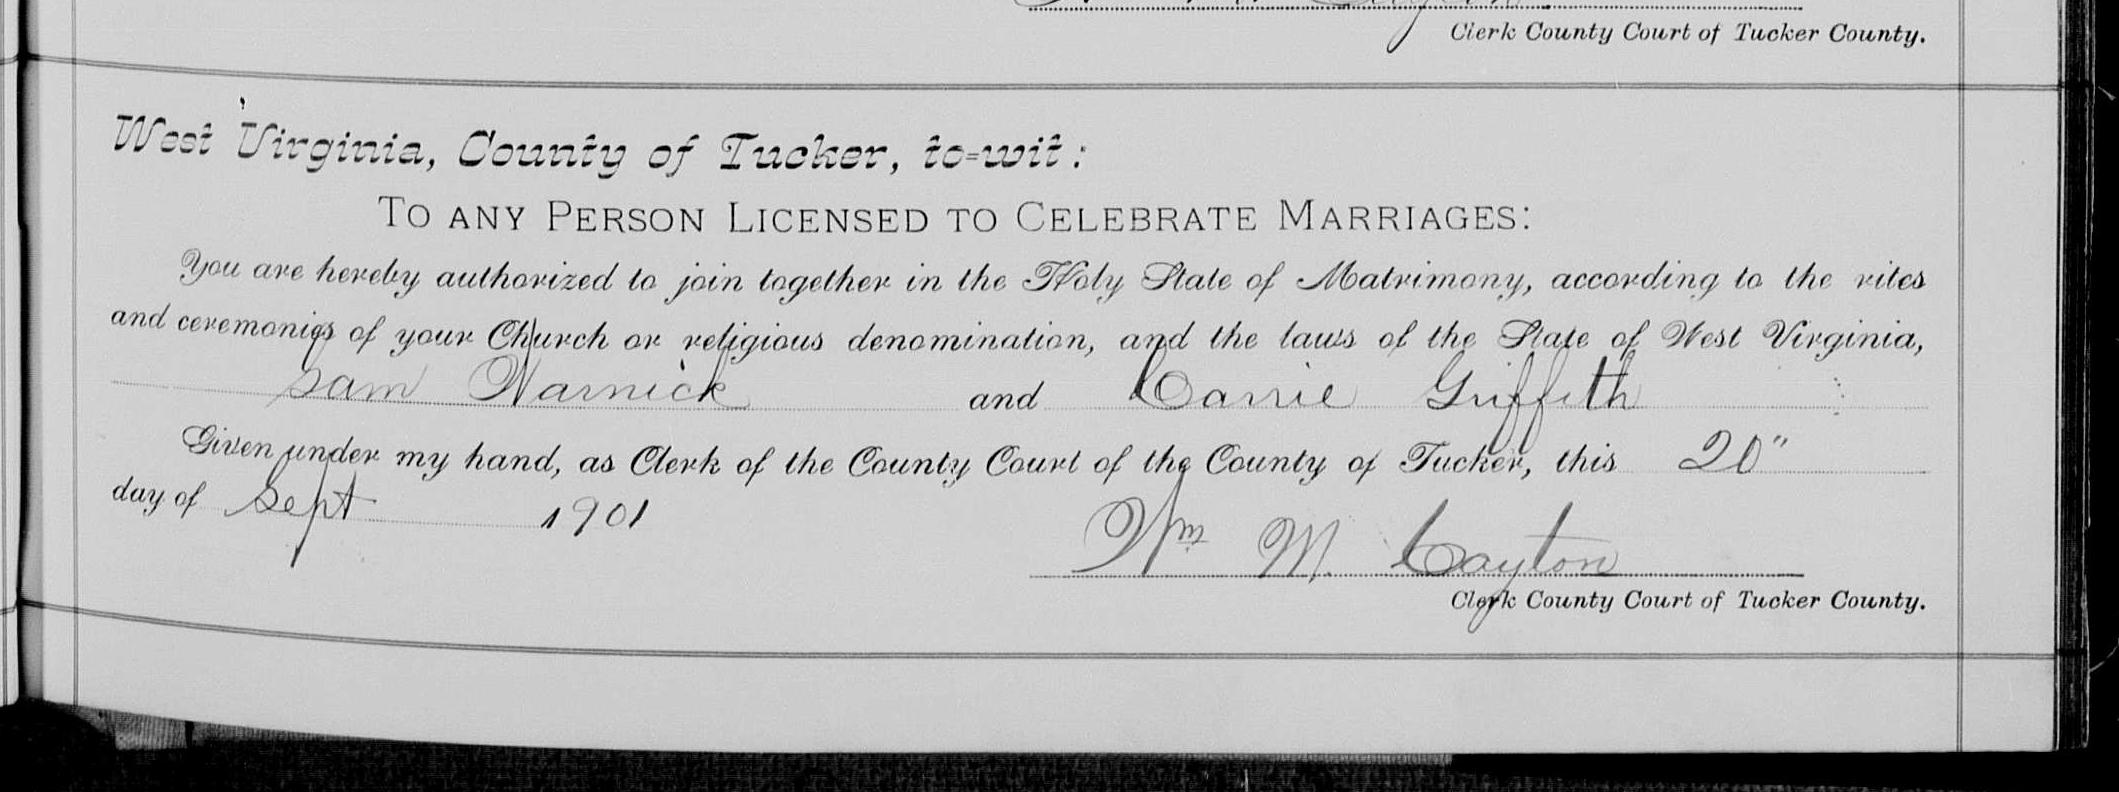 Clerk County Court of Tucker County.
West Virginia, County of Tucker, to=wit:
TO ANY PERSON LICENSED TO CELEBRATE MARRIAGES:
You are hereby authorized to join together in the Holy State of Matrimony, according to the rites
and ceremonies of your Church or religious denomination, and the laws of the State of West Virginia,
Sam Warnick and Carrie Griffith
Given under my hand, as Clerk of the County Court of the County of Tucker, this 20"
day of Sept 1901
Wm M. Cayton
Clerk County Court of Tucker County.